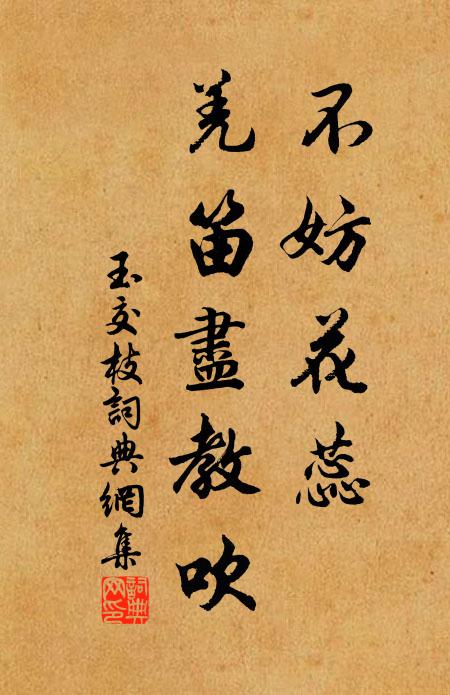 不妨花蕊
羌笛盡教吹
玉交枝詞典網集
詞典网印